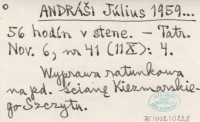 ANDRÁŠI Július 1959...
56 hodín v stene. – Tatr.
Nov. 6, nr 41 (11 X): 4.
Wyprawa ratunkowa
na pd. ścianę Kiezmarskie-
go Szczytu.